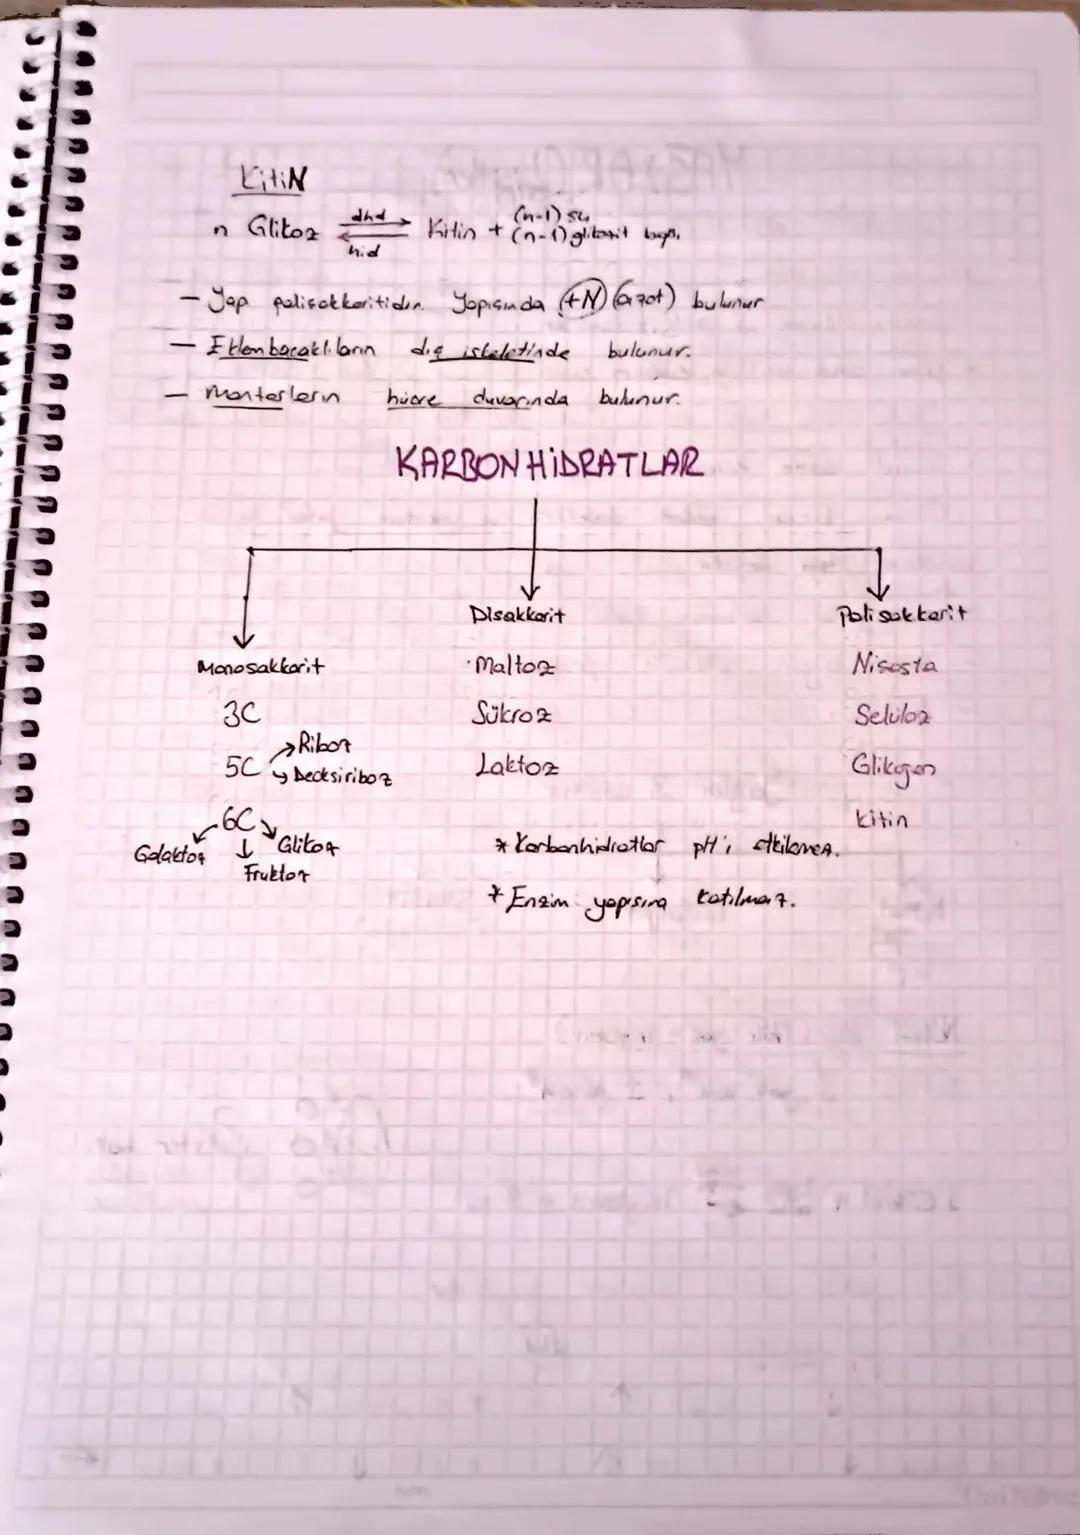 KitiN
n Glikoz dhd Kitin + (n-1) su
hid (n-1) glikozit bağı.
- Yapı polisakkaritidir. Yapısında (+N) (azot) bulunur
- Eklembacaklıların dış iskeletinde bulunur.
- Mantarların hücre duvarında bulunur.
KARBONHİDRATLAR
Disakkarit Polisakkarit
Monosakkarit Maltoz Nişasta
3C Sükroz Selüloz
5C Riboz
Deoksiriboz Laktoz Glikogen
6C kitin
Galaktoz Glikoz
Fruktoz
* Karbonhidratlar pH'ı etkilemez.
* Enzim yapısına katılmaz.